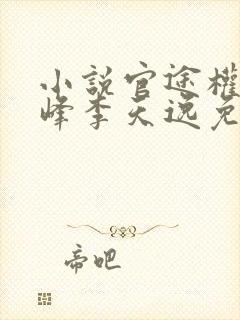 小說官途權
峰李天逸免
帝吧